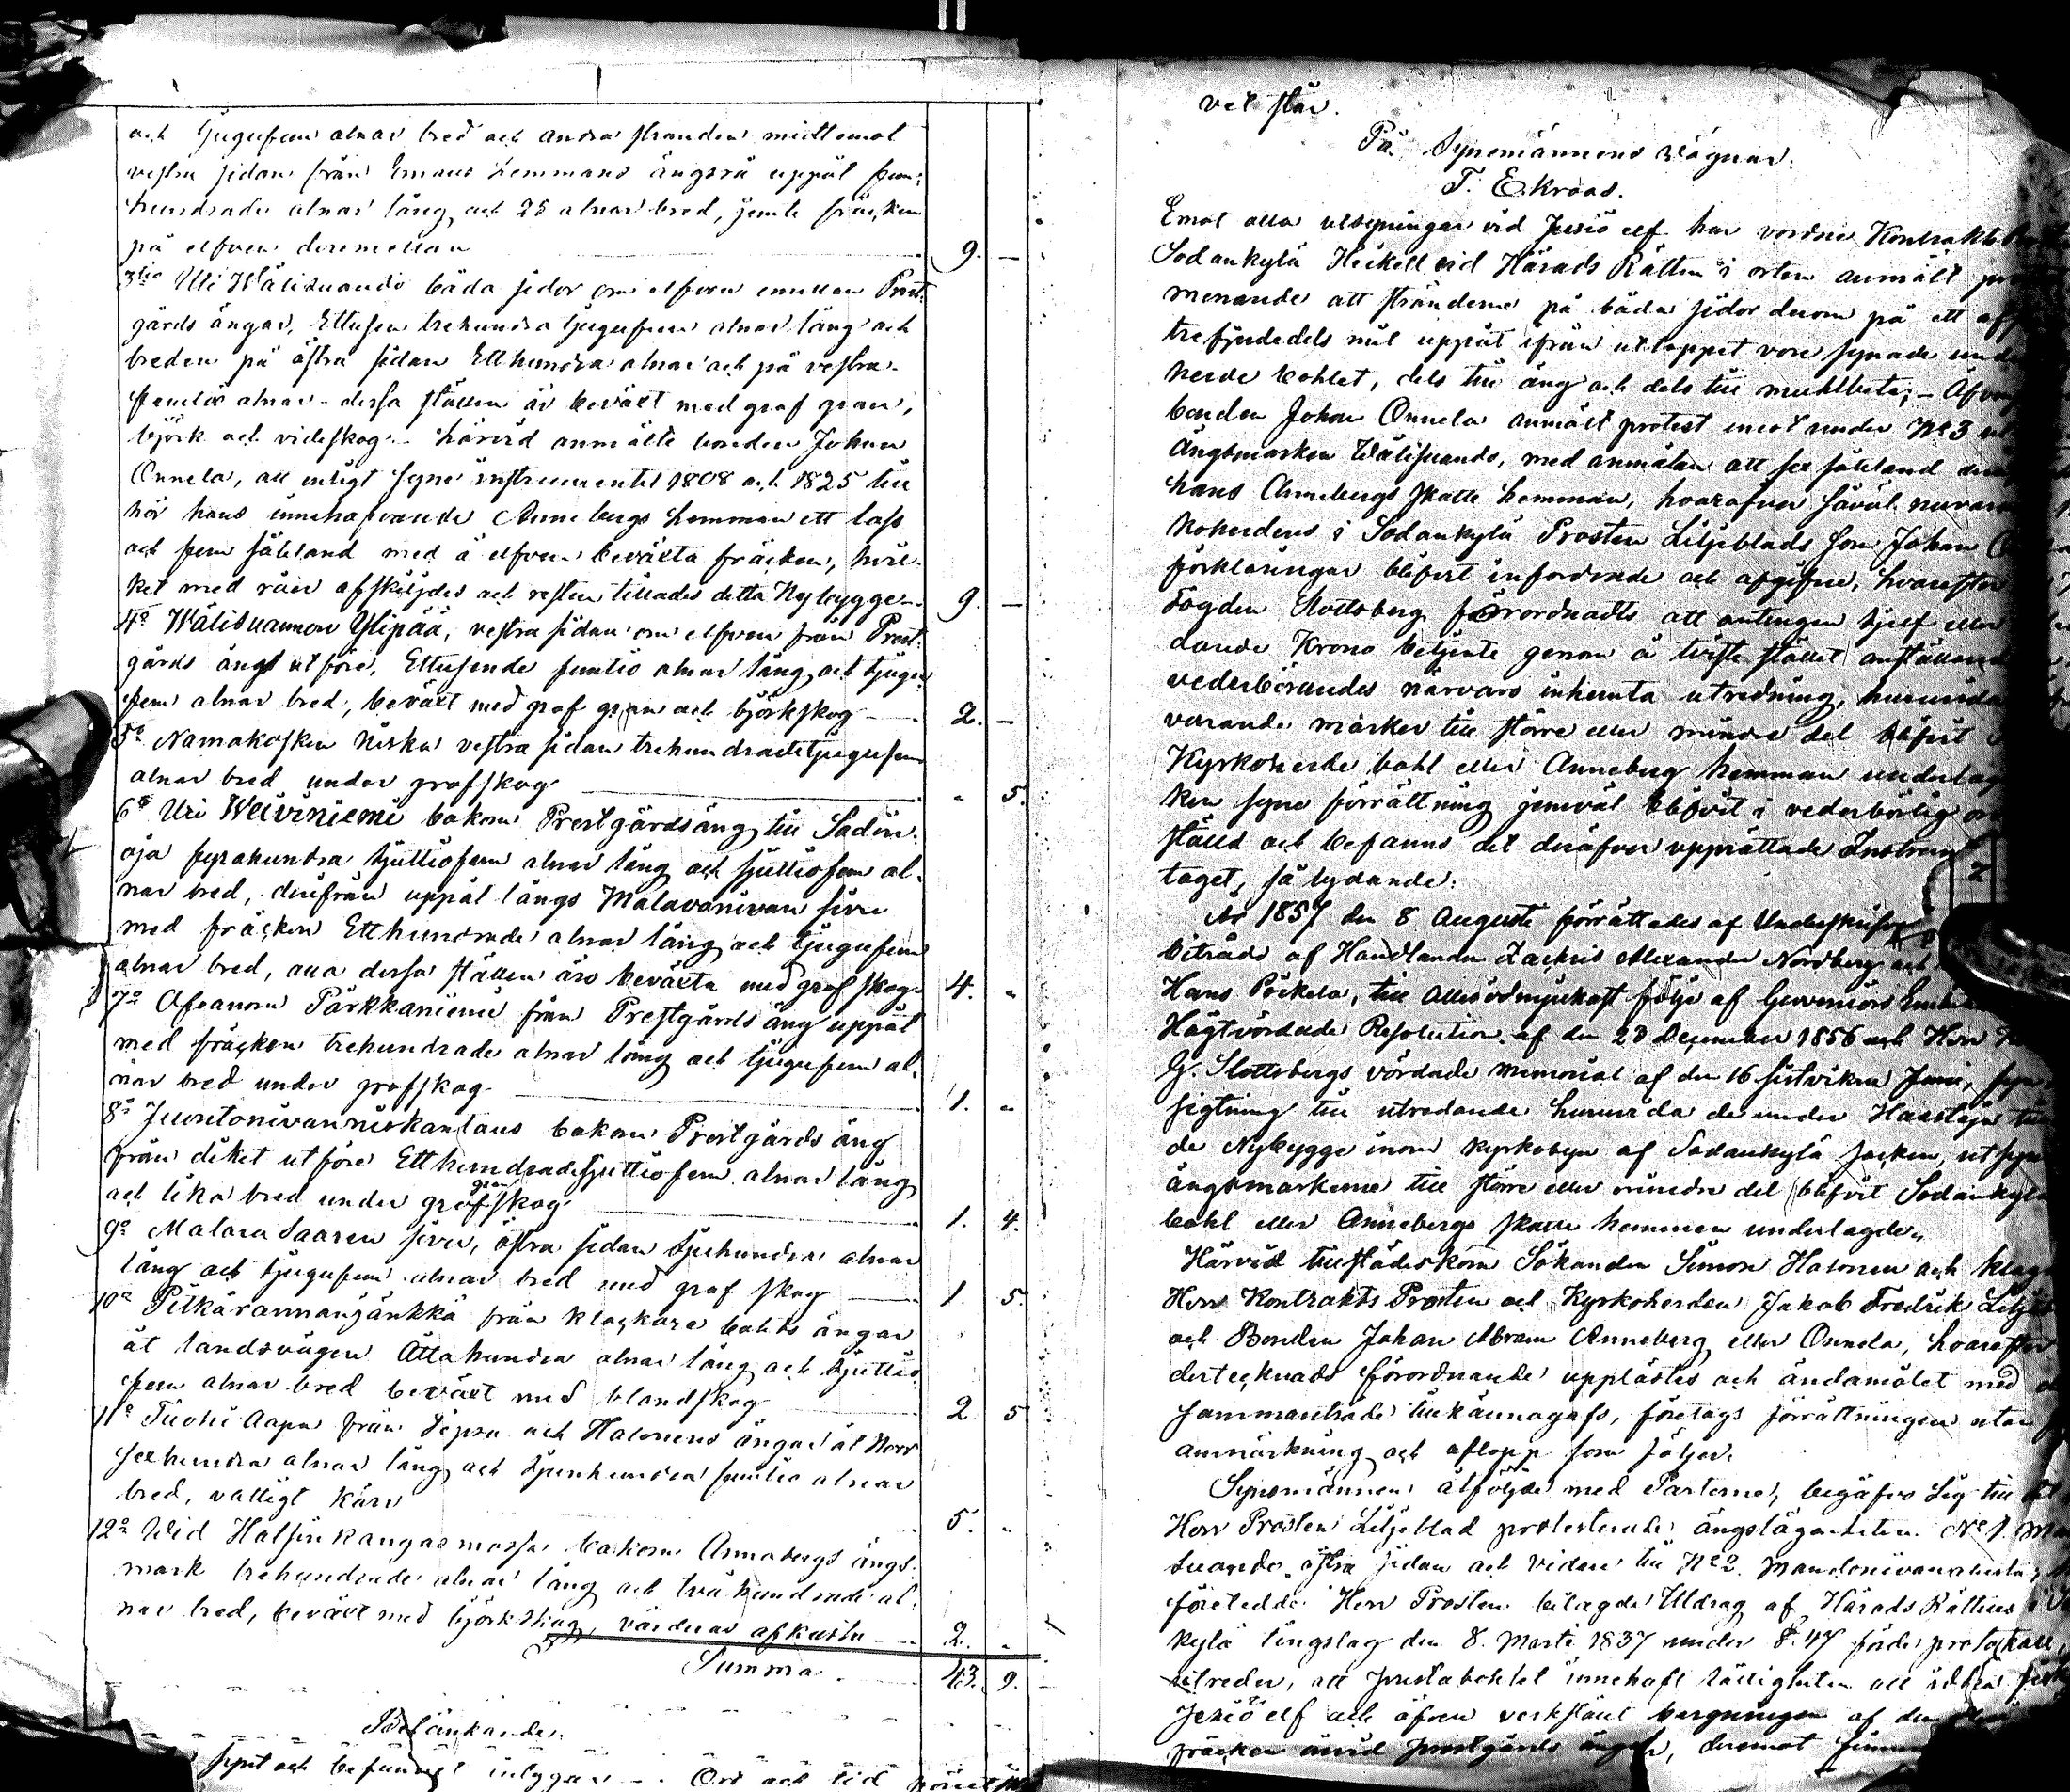 och tjugufem alnar bred och andra stranden midtemot
vestra sidan från Emaus hemmans ängsrå uppåt fem-
hundrade alnar lång, och 25 alnar bred, jemte fräken
på elfven deremellan 9. —
3tio Uti Wälisuando båda sidor om elfven emellan Prest-
gårds ängar, Ettusen trehundra tjugufem alnar lång och
breden på östra sidan Etthundra alnar och på vestra
femtio alnar - dessa ställen är beväxt med graf gran,
björk och videskog. - härvid anmälte bonden Johan
Onnela, att enligt syne instrumentet 1808 och 1825 till
hör hans innehafvande Annebergs hemman ett lass
och fem såteland med å elfven beväxta fräken, hvil-
ket med råer afskiljdes och resten tillades detta Nybygge 9. —
4o Wälisuannon Ylipää, vestra sidan om elfven från Prest-
gårds ängs utföre, Ettusende femtio alnar lång och tjugu
fem alnar bred, beväxt med graf gran och björkskog 2. —
5o Namakosken niska vestra sidan trehundrade tjugufem
alnar bred under grafskog " 5.
6o Uti Weiviniemi bakom Prestgårdsäng till Sadin-
oja fyrahundra sjuttiofem alnar lång och sjuttiofem al-
nar bred, derifrån uppåt längs Malavanivan sivu
med fräken Etthundrade alnar lång och tjugufem
alnar bred, alla dessa ställen äro beväxta med graf skog 4. "
7o Ofvanom Pärkkäniemi från Prestgårds äng uppåt
med fräken trehundrade alnar lång och tjugufem al-
nar bred under grafskog 1. "
8o Juontonivanniskantaus bakom Prestgårds äng
från diket utföre Etthundrade sjuttiofem alnar lång
och lika bred under graf gran skog 1. 4.
9o Malava Saaren sivu, östra sidan sjuhundra alnar
lång och tjugufem alnar bred med graf skog 1. 5.
10o Pitkärannanjänkkä från klockare bohls ängar
åt landsvägen Åttahundra alnar lång och sjuttio
fem alnar bred beväxt med blandskog 2 5
11o Tuohi Aapa från Seppä och Halonens ängar åt Norr
sexhundra alnar lång, och sjuhundra femtio alnar
bred, valligt kärr 5. "
12o Wid Halsinkangas mossa bakom Annebergs ängs-
mark trehundrade alnar lång och tvåhundrade al-
nar bred, beväxt med björkskog, värderas afkasta 2. "
Summa 43. 9.
Betänkande.
Synt och befunnet
vet står.
På Synemännens vägnar.
T. Ekroos.
Emot alla utsyningar vid Jesiö elf har vordne Kontrakts
Sodankylä Heikell vid Härads Rätten i orten anmält
menande att stränderne på båda sidor derom på ett
trefjerdedels mil uppåt ifrån utloppet vore synade
herde bohlet, dels till äng och dels till muhlbete; -
bonden Johan Onnela anmält protest emot under No 3
Ängsmarken Wälisuando, med anmälan att sex såteland
hans Annebergs skatte hemman, hvaröfver såväl
koherdens i Sodankylä Prosten Liljeblads som Johan
förklaringar blifvit infordrade och afgifne, hvarefter
Fogden Slottsberg förordnadts att antingen sjelf eller
dande Krono betjente genom å tviste stället anställand
vederbörandes närvaro inhemta utredning, huruvida
varande marker till större eller mindre del blifvit
Kyrkoherde bohl eller Anneberg hemman underlag
ken syne förrättning jemväl blifvit i vederbörlig
ställd och befanns det deröfver upprättade
taget, så lydande:
År 1857 den 8 Augusti förrättades af
biträde af Handlanden Zachris Alexander Nordberg och
Hans Pökelä, till Allerödmjukast följe af
Högtvördade Resolution af den 23 December 1856 och Herr
G. Slottsbergs vördade memorial af den 16 sistvikne Juni,
sigtning till utredande huruvida de under
de Nybygge inom kyrkobyn af Sodankylä socken,
ängsmarkerne till större eller mindre del blifvit
bohl eller Annebergs skatte hemman underlagde.
Härvid tillstädeskom Sökanden Simon Halonen och
Herr Kontrakts Prosten och Kyrkoherden Jakob Fredrik
och Bonden Johan Abram Anneberg eller Onnela, hvarefter
dertecknads förordnande upplästes och ändamålet med
sammanträde tillkännagafs, företogs förrättningen utan
anmärkning och aflopp som följer.
Synemännen åtföljde med Parterne, begåfvo sig till
Herr Prosten Liljeblad protesterade ängslägenheten No 1.
suando östra sidan och vidare till No 2.
företedde Herr Prosten bilagde Utdrag af Härads Rättens
kylä tingslag den 8. Martii 1837 under § 47 förde protokoll,
utreder, att prestabohlet innehaft rättigheten att idka
Jesiö elf och äfven verkstält bergningen af
fräken invid prestgårds ängar, deremot